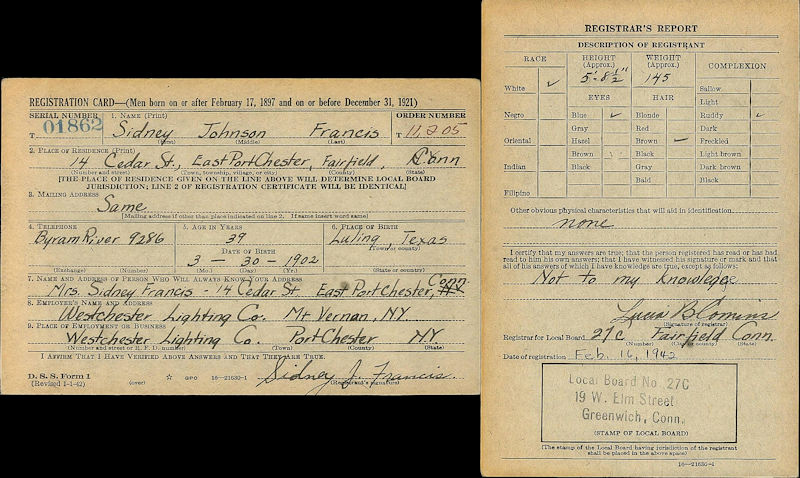 REGISTRATION CARD—(Men born on or after February 17, 1897 and on or before December 31, 1921)
SERIAL NUMBER 1. NAME (Print) ORDER NUMBER
T 01862 Sidney Johnson Francis T 11,205
(First) (Middle) (Last)
2. PLACE OF RESIDENCE (Print)
14 Cedar St., East Port Chester, Fairfield, Conn
(Number and street) (Town, township, village, or city) (County) (State)
[THE PLACE OF RESIDENCE GIVEN ON THE LINE ABOVE WILL DETERMINE LOCAL BOARD
JURISDICTION; LINE 2 OF REGISTRATION CERTIFICATE WILL BE IDENTICAL]
3. MAILING ADDRESS
Same
[Mailing address if other than place indicated on line 2. If same insert word same]
4. TELEPHONE 5. AGE IN YEARS 6. PLACE OF BIRTH
Byram River 9286 39 Luling
DATE OF BIRTH (Town or county)
3 — 30 — 1902 Texas
(Exchange) (Number) (Mo.) (Day) (Yr.) (State or country)
7. NAME AND ADDRESS OF PERSON WHO WILL ALWAYS KNOW YOUR ADDRESS
Mrs. Sidney Francis - 14 Cedar St. East Port Chester, Conn.
8. EMPLOYER'S NAME AND ADDRESS
Westchester Lighting Co. Mt Vernan, NY
9. PLACE OF EMPLOYMENT OR BUSINESS
Westchester Lighting Co. Port Chester NY
(Number and street or R. F. D. number) (Town) (County) (State)
I AFFIRM THAT I HAVE VERIFIED ABOVE ANSWERS AND THAT THEY ARE TRUE.
Sidney J. Francis
D. S. S. Form 1 GPO 16—21630-1 (Registrant's signature)
(Revised 1-1-42) (over)
REGISTRAR'S REPORT
DESCRIPTION OF REGISTRANT
RACE HEIGHT (Approx.) WEIGHT (Approx.) COMPLEXION
5'-8½" 145
White ✓ Sallow
EYES HAIR Light
Negro Blue ✓ Blonde Ruddy ✓
Gray Red Dark
Oriental Hazel Brown ✓ Freckled
Brown Black Light brown
Indian Black Gray Dark brown
Bald Black
Filipino
Other obvious physical characteristics that will aid in identification
none
I certify that my answers are true; that the person registered has read or has had
read to him his own answers; that I have witnessed his signature or mark and that
all of his answers of which I have knowledge are true, except as follows:
Not to my knowlegee
(Signature of registrar)
Registrar for Local Board 27C Fairfield Conn.
(Number) (City or county) (State)
Date of registration Feb. 16, 1942
Local Board No. 27C
19 W. Elm Street
Greenwich, Conn.
(STAMP OF LOCAL BOARD)
(The stamp of the Local Board having jurisdiction of the registrant
shall be placed in the above space)
16—21630-1